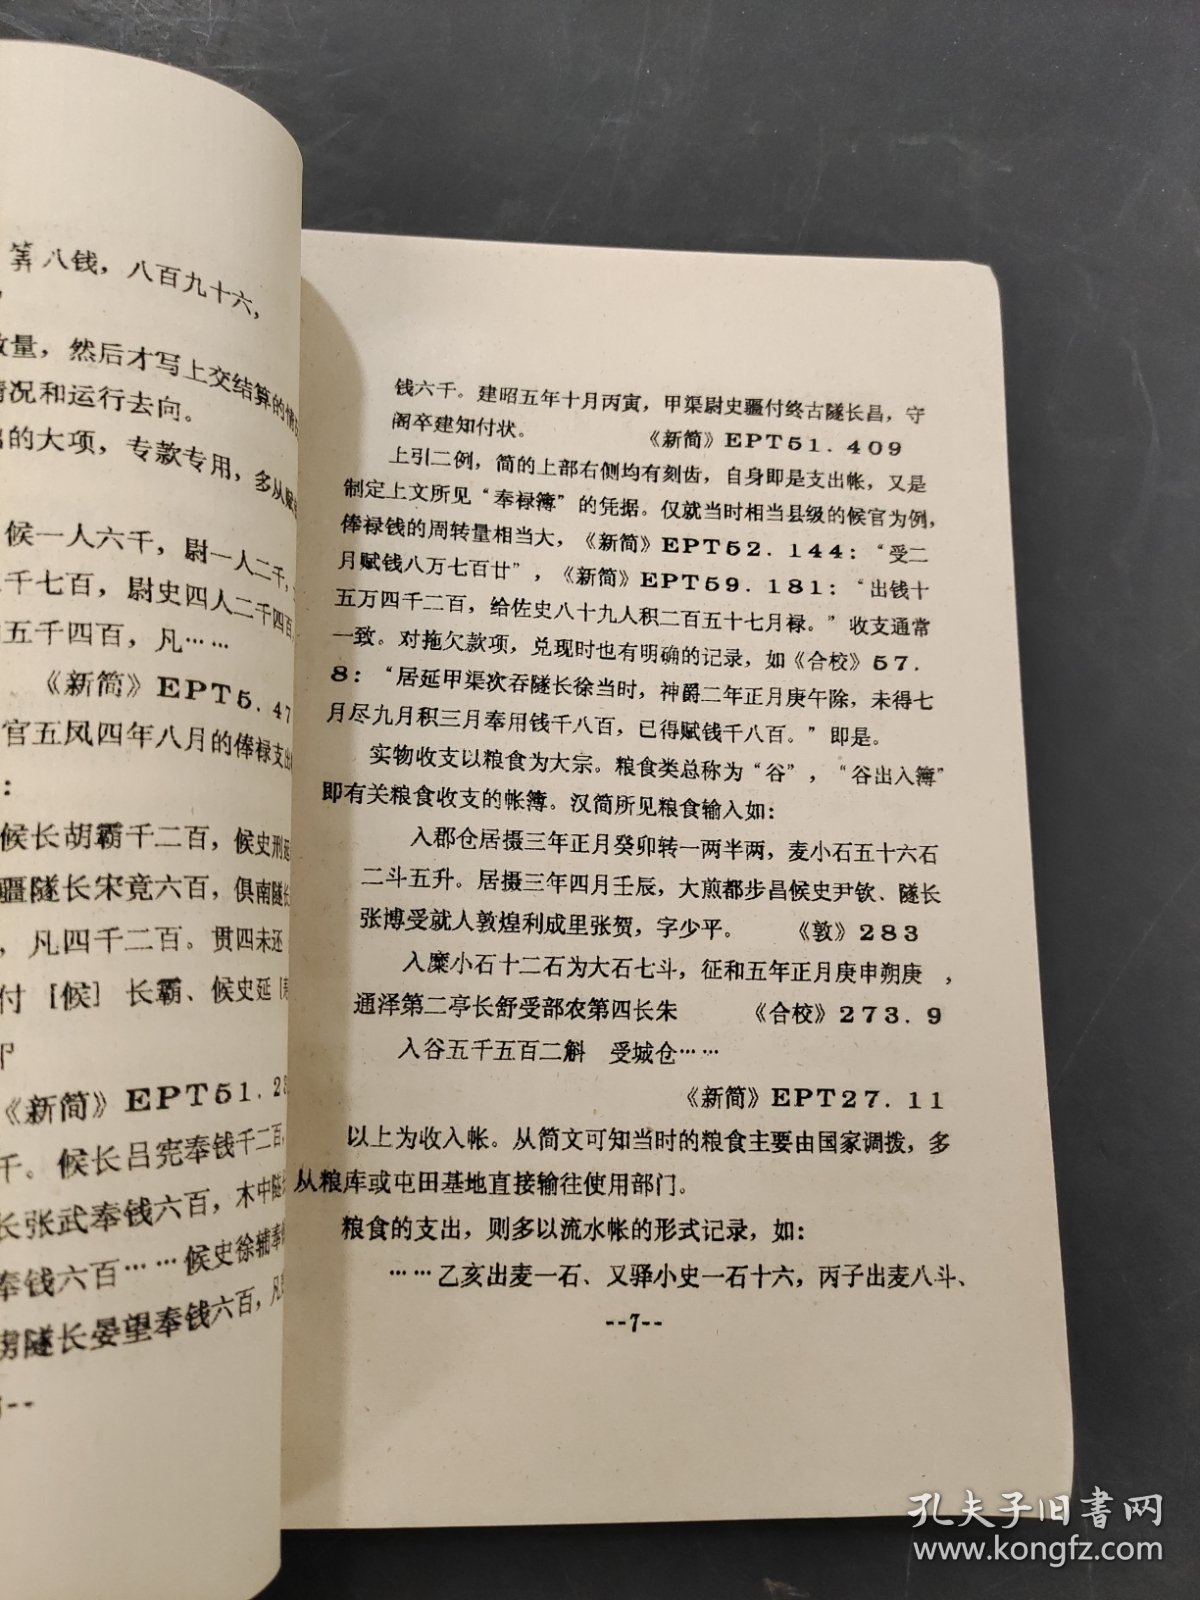 筭八钱，八百九十六，
数量，然后才写上交结算的情
情况和运行去向。
的大项，专款专用，多从赋
候一人六千，尉一人二千，
千七百，尉史四人二千四百
五千四百，凡……
《新简》EPT5.47
官五凤四年八月的俸禄支出
：
候长胡霸千二百，候史刑延
疆隧长宋竟六百，俱南隧长
，凡四千二百。贯四未还
付［候］长霸、候史延
卩
《新简》EPT51.23
千。候长吕宪奉钱千二百，
长张武奉钱六百，木中隧
奉钱六百……候史徐辅奉
隧长晏望奉钱六百，凡
--
钱六千。建昭五年十月丙寅，甲渠尉史疆付终古隧长昌，守
阁卒建知付状。 《新简》EPT51.409
上引二例，简的上部右侧均有刻齿，自身即是支出帐，又是
制定上文所见“奉禄簿”的凭据。仅就当时相当县级的候官为例，
俸禄钱的周转量相当大，《新简》EPT52.144：“受二
月赋钱八万七百廿”，《新简》EPT59.181：“出钱十
五万四千二百，给佐史八十九人积二百五十七月禄。”收支通常
一致。对拖欠款项，兑现时也有明确的记录，如《合校》57.
8：“居延甲渠次吞隧长徐当时，神爵二年正月庚午除，未得七
月尽九月积三月奉用钱千八百，已得赋钱千八百。”即是。
实物收支以粮食为大宗。粮食类总称为“谷”，“谷出入簿”
即有关粮食收支的帐簿。汉简所见粮食输入如：
入郡仓居摄三年正月癸卯转一两半两，麦小石五十六石
二斗五升。居摄三年四月壬辰，大煎都步昌候史尹钦、隧长
张博受就人敦煌利成里张贺，字少平。 《敦》283
入糜小石十二石为大石七斗，征和五年正月庚申朔庚 ，
通泽第二亭长舒受部农第四长朱 《合校》273.9
入谷五千五百二斛 受城仓……
《新简》EPT27.11
以上为收入帐。从简文可知当时的粮食主要由国家调拨，多
从粮库或屯田基地直接输往使用部门。
粮食的支出，则多以流水帐的形式记录，如：
……乙亥出麦一石、又驿小史一石十六，丙子出麦八斗、
--7--
孔夫子旧书网
www.kongfz.com